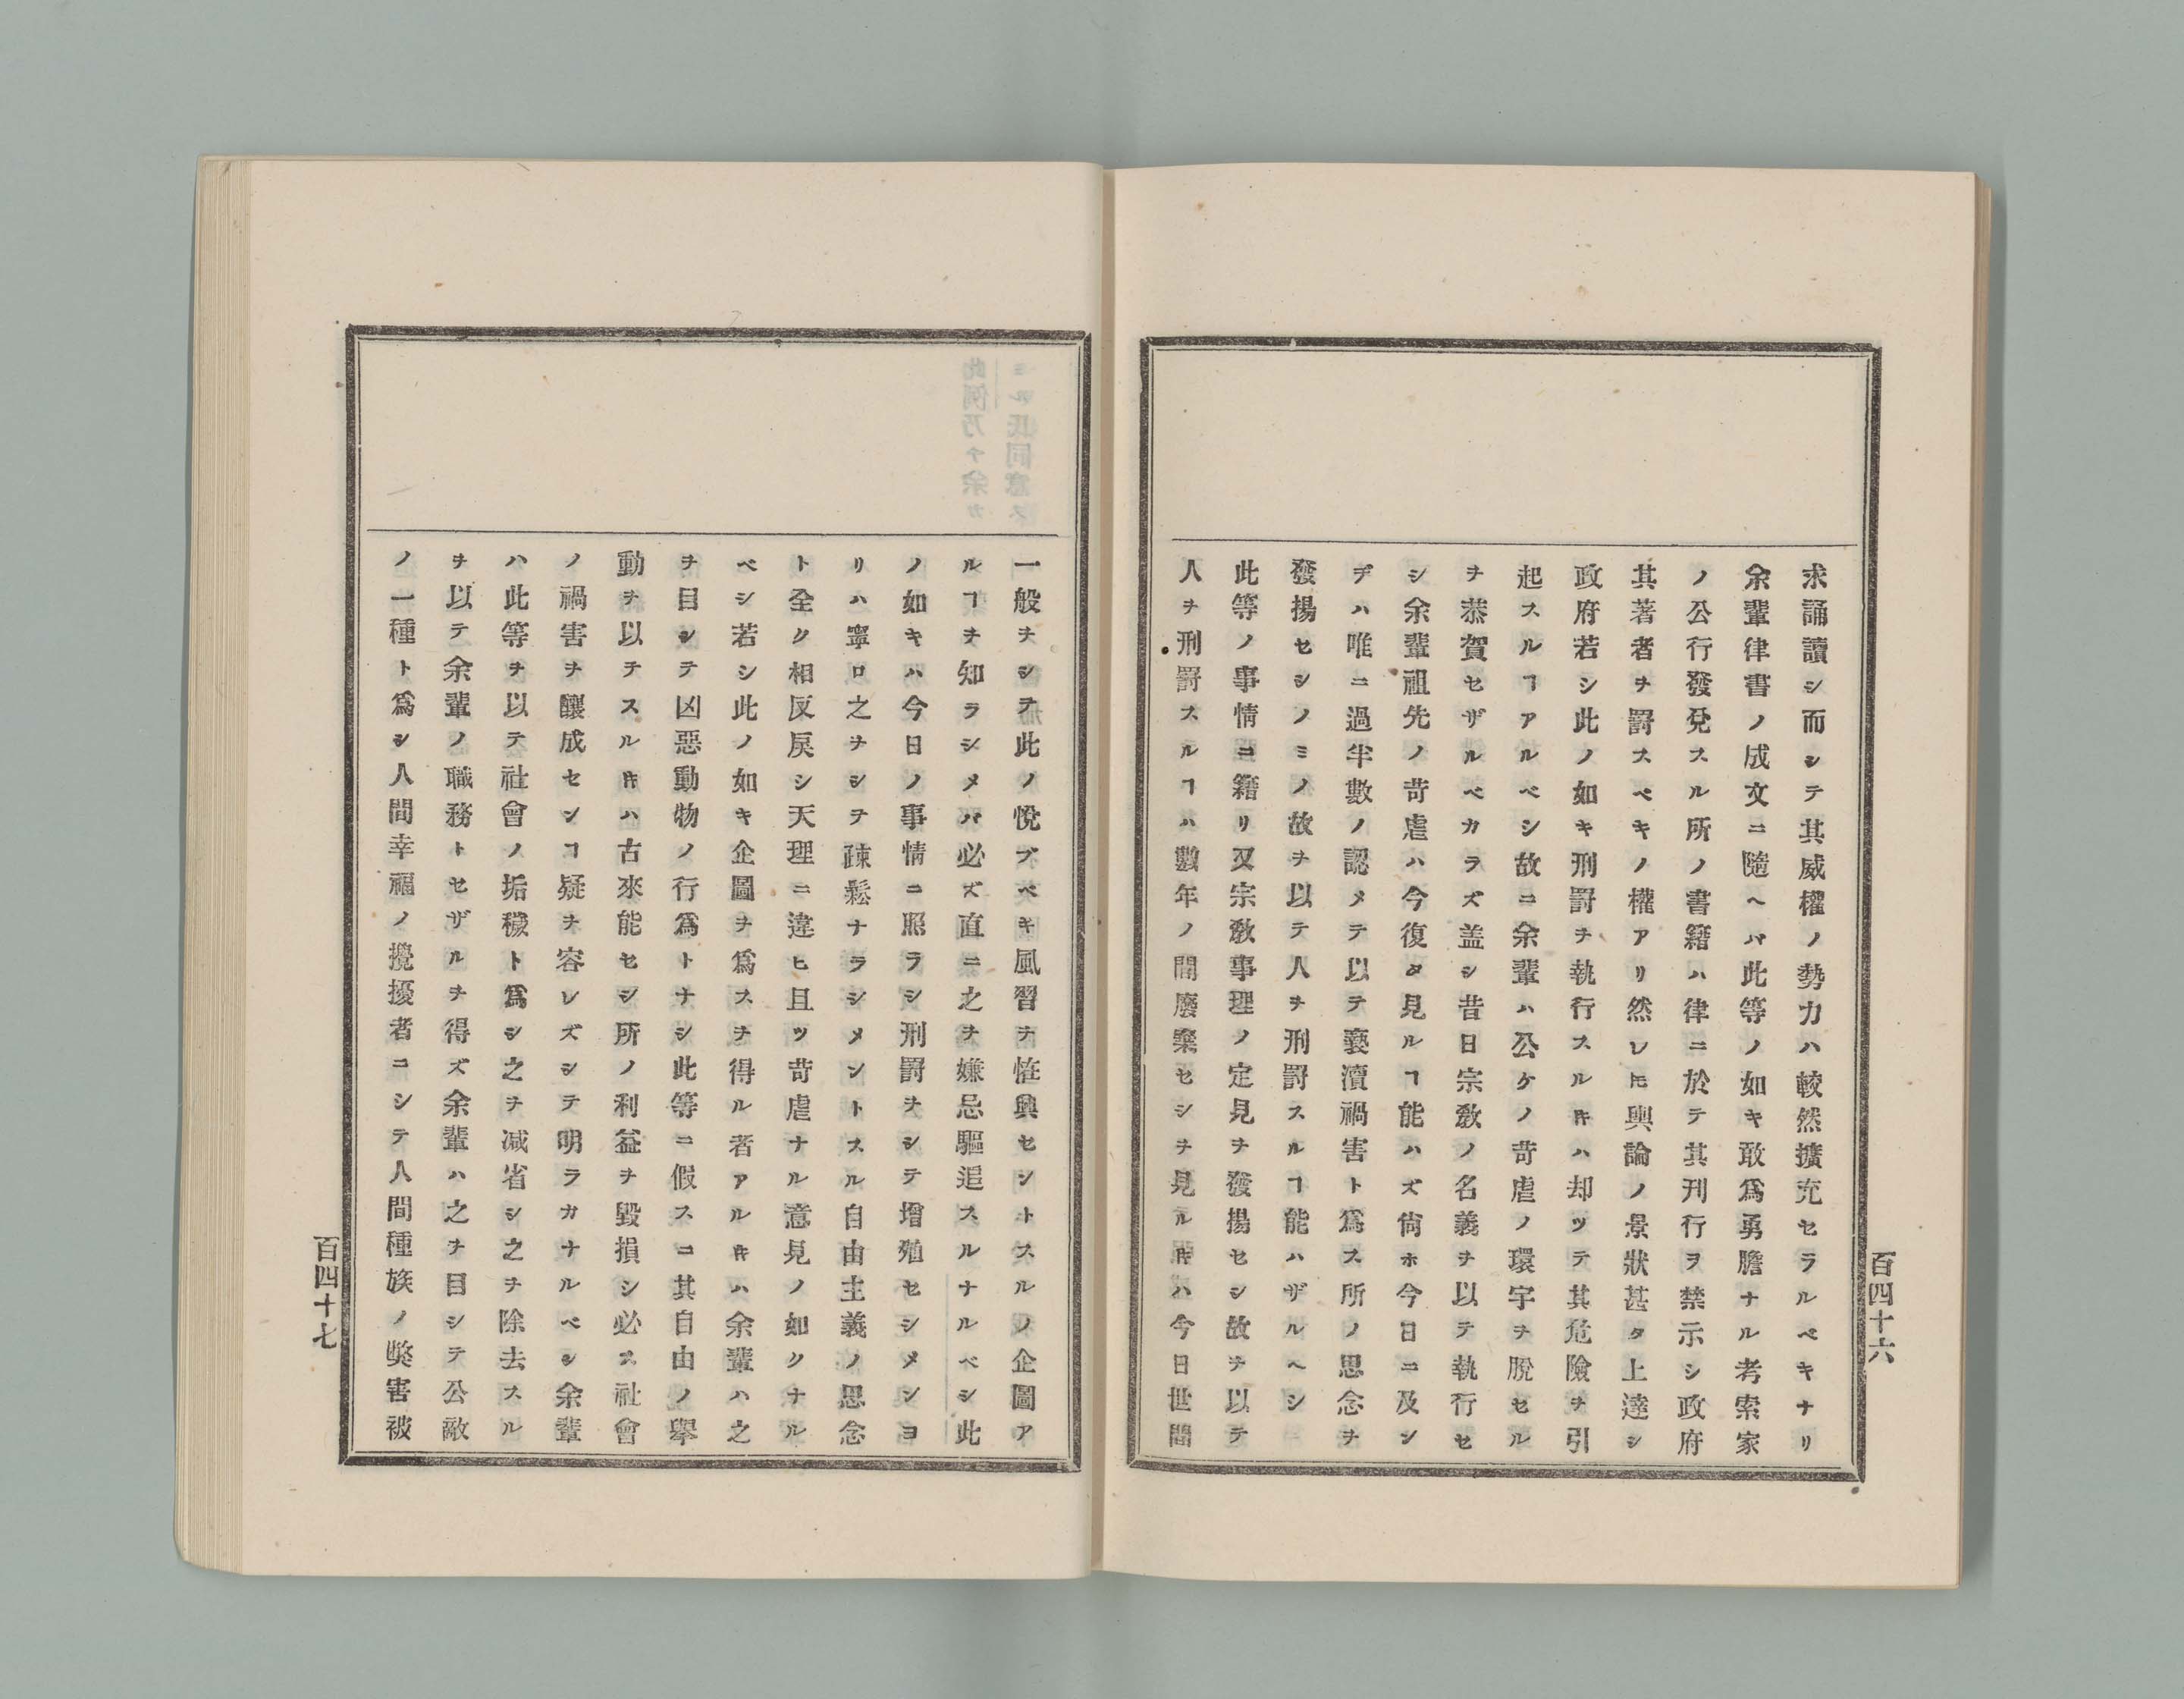 求誦讀シ而シテ其威權ノ勢力ハ較然擴充セラルベキナリ
余輩律書ノ成文ニ隨ヘバ此等ノ如キ敢爲勇膽ナル考索家
ノ公行發兌スル所ノ書籍ハ律ニ於テ其刊行ヲ禁示シ政府
其著者ヲ罰スベキノ權アリ然レ𪜈輿論ノ景狀甚タ上達シ
政府若シ此ノ如キ刑罰ヲ執行スルキハ却ツテ其危險ヲ引
起スルヿアルベシ故ニ余輩ハ公ケノ苛虐ノ環宇ヲ脫セル
ヲ恭賀セザルベカラズ盖シ昔日宗敎ノ名義ヲ以テ執行セ
シ余輩祖先ノ苛虐ハ今復タ見ルヿ能ハズ尙ホ今日ニ及ン
デハ唯ニ過半數ノ認メテ以テ褻瀆禍害ト爲ス所ノ思念ヲ
發揚セシノミノ故ヲ以テ人ヲ刑罰スルヿ能ハザルヘシ
此等ノ事情ニ籍リ又宗敎事理ノ定見ヲ發揚セシ故ヲ以テ
人ヲ刑罰スルヿハ數年ノ間廢棄セシヲ見ル𪜈ハ今日世間
百四十六
一般ヲシテ此ノ悅ブベキ風習ヲ恠興セントスルノ企圖ア
ルヿヲ知ラシメバ必ズ直ニ之ヲ嫌忌驅追スルナルベシ此
ノ如キハ今日ノ事情ニ照ラシ刑罰ヲシテ增殖セシメンヨ
リハ寧ロ之ヲシテ疎鬆ナラシメントスル自由主義ノ思念
ト全ク相反戾シ天理ニ違ヒ且ツ苛虐ナル意見ノ如クナル
ベシ若シ此ノ如キ企圖ヲ爲スヲ得ル者アルキハ余輩ハ之
ヲ目シテ凶惡動物ノ行爲トナシ此等ニ假スニ其自由ノ擧
動ヲ以テスルキハ古來能セシ所ノ利益ヲ毀損シ必ス社會
ノ禍害ヲ釀成センヿ疑ヲ容レズシテ明ラカナルベシ余輩
ハ此等ヲ以テ社會ノ垢穢ト爲シ之ヲ减省シ之ヲ除去スル
ヲ以テ余輩ノ職務トセザルヲ得ズ余輩ハ之ヲ目シテ公敵
ノ一種ト爲シ人間幸福ノ攪擾者ニシテ人間種族ノ獘害被
百四十七